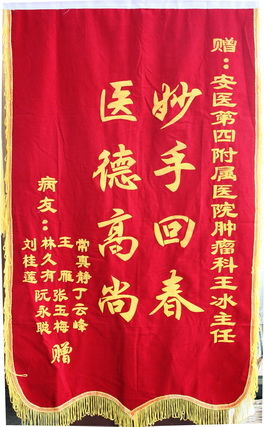 赠：安医第四附属医院肿瘤科王冰主任
妙手回春
医德高尚
常真静丁云峰
王雁张玉梅
病友：林久有阮永聪
刘桂莲
赠